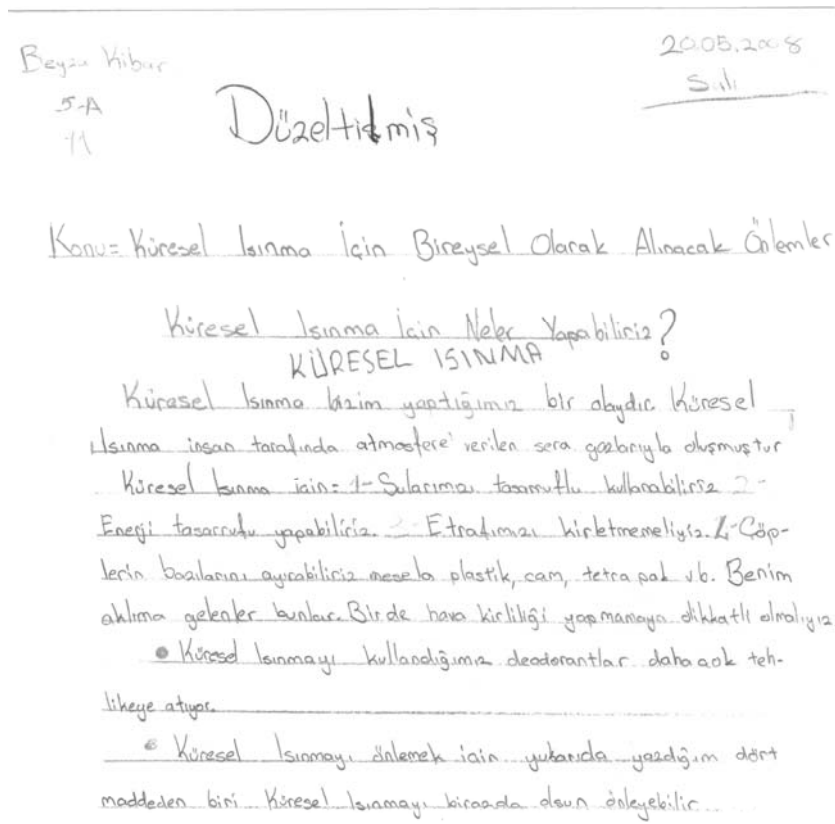 Beyza Kibar
20.05.2008
5-A
Salı
11
Düzeltilmiş
Konu= Küresel Isınma İçin Bireysel Olarak Alınacak Önlemler
Küresel Isınma İçin Neler Yapabiliriz?
KÜRESEL ISINMA
Küresel Isınma bizim yaptığımız bir olaydır. Küresel
Isınma insan tarafında atmosfere verilen sera gazlarıyla oluşmuştur
Küresel Isınma için= 1- Sularımızı tasarruflu kullanabiliriz 2-
Enerji tasarrufu yapabiliriz. 3- Etrafımızı kirletmemeliyiz. 4- Çöp-
lerin bazılarını ayırabiliriz mesela plastik, cam, tetra pak vb. Benim
aklıma gelenler bunlar. Birde hava kirliliği yapmamaya dikkatli olmalıyız
• Küresel Isınmayı kullandığımız deodorantlar daha çok teh-
likeye atıyor.
• Küresel Isınmayı önlemek için yukarıda yazdığım dört
maddeden biri Küresel Isınmayı birazda olsun önleyebilir.